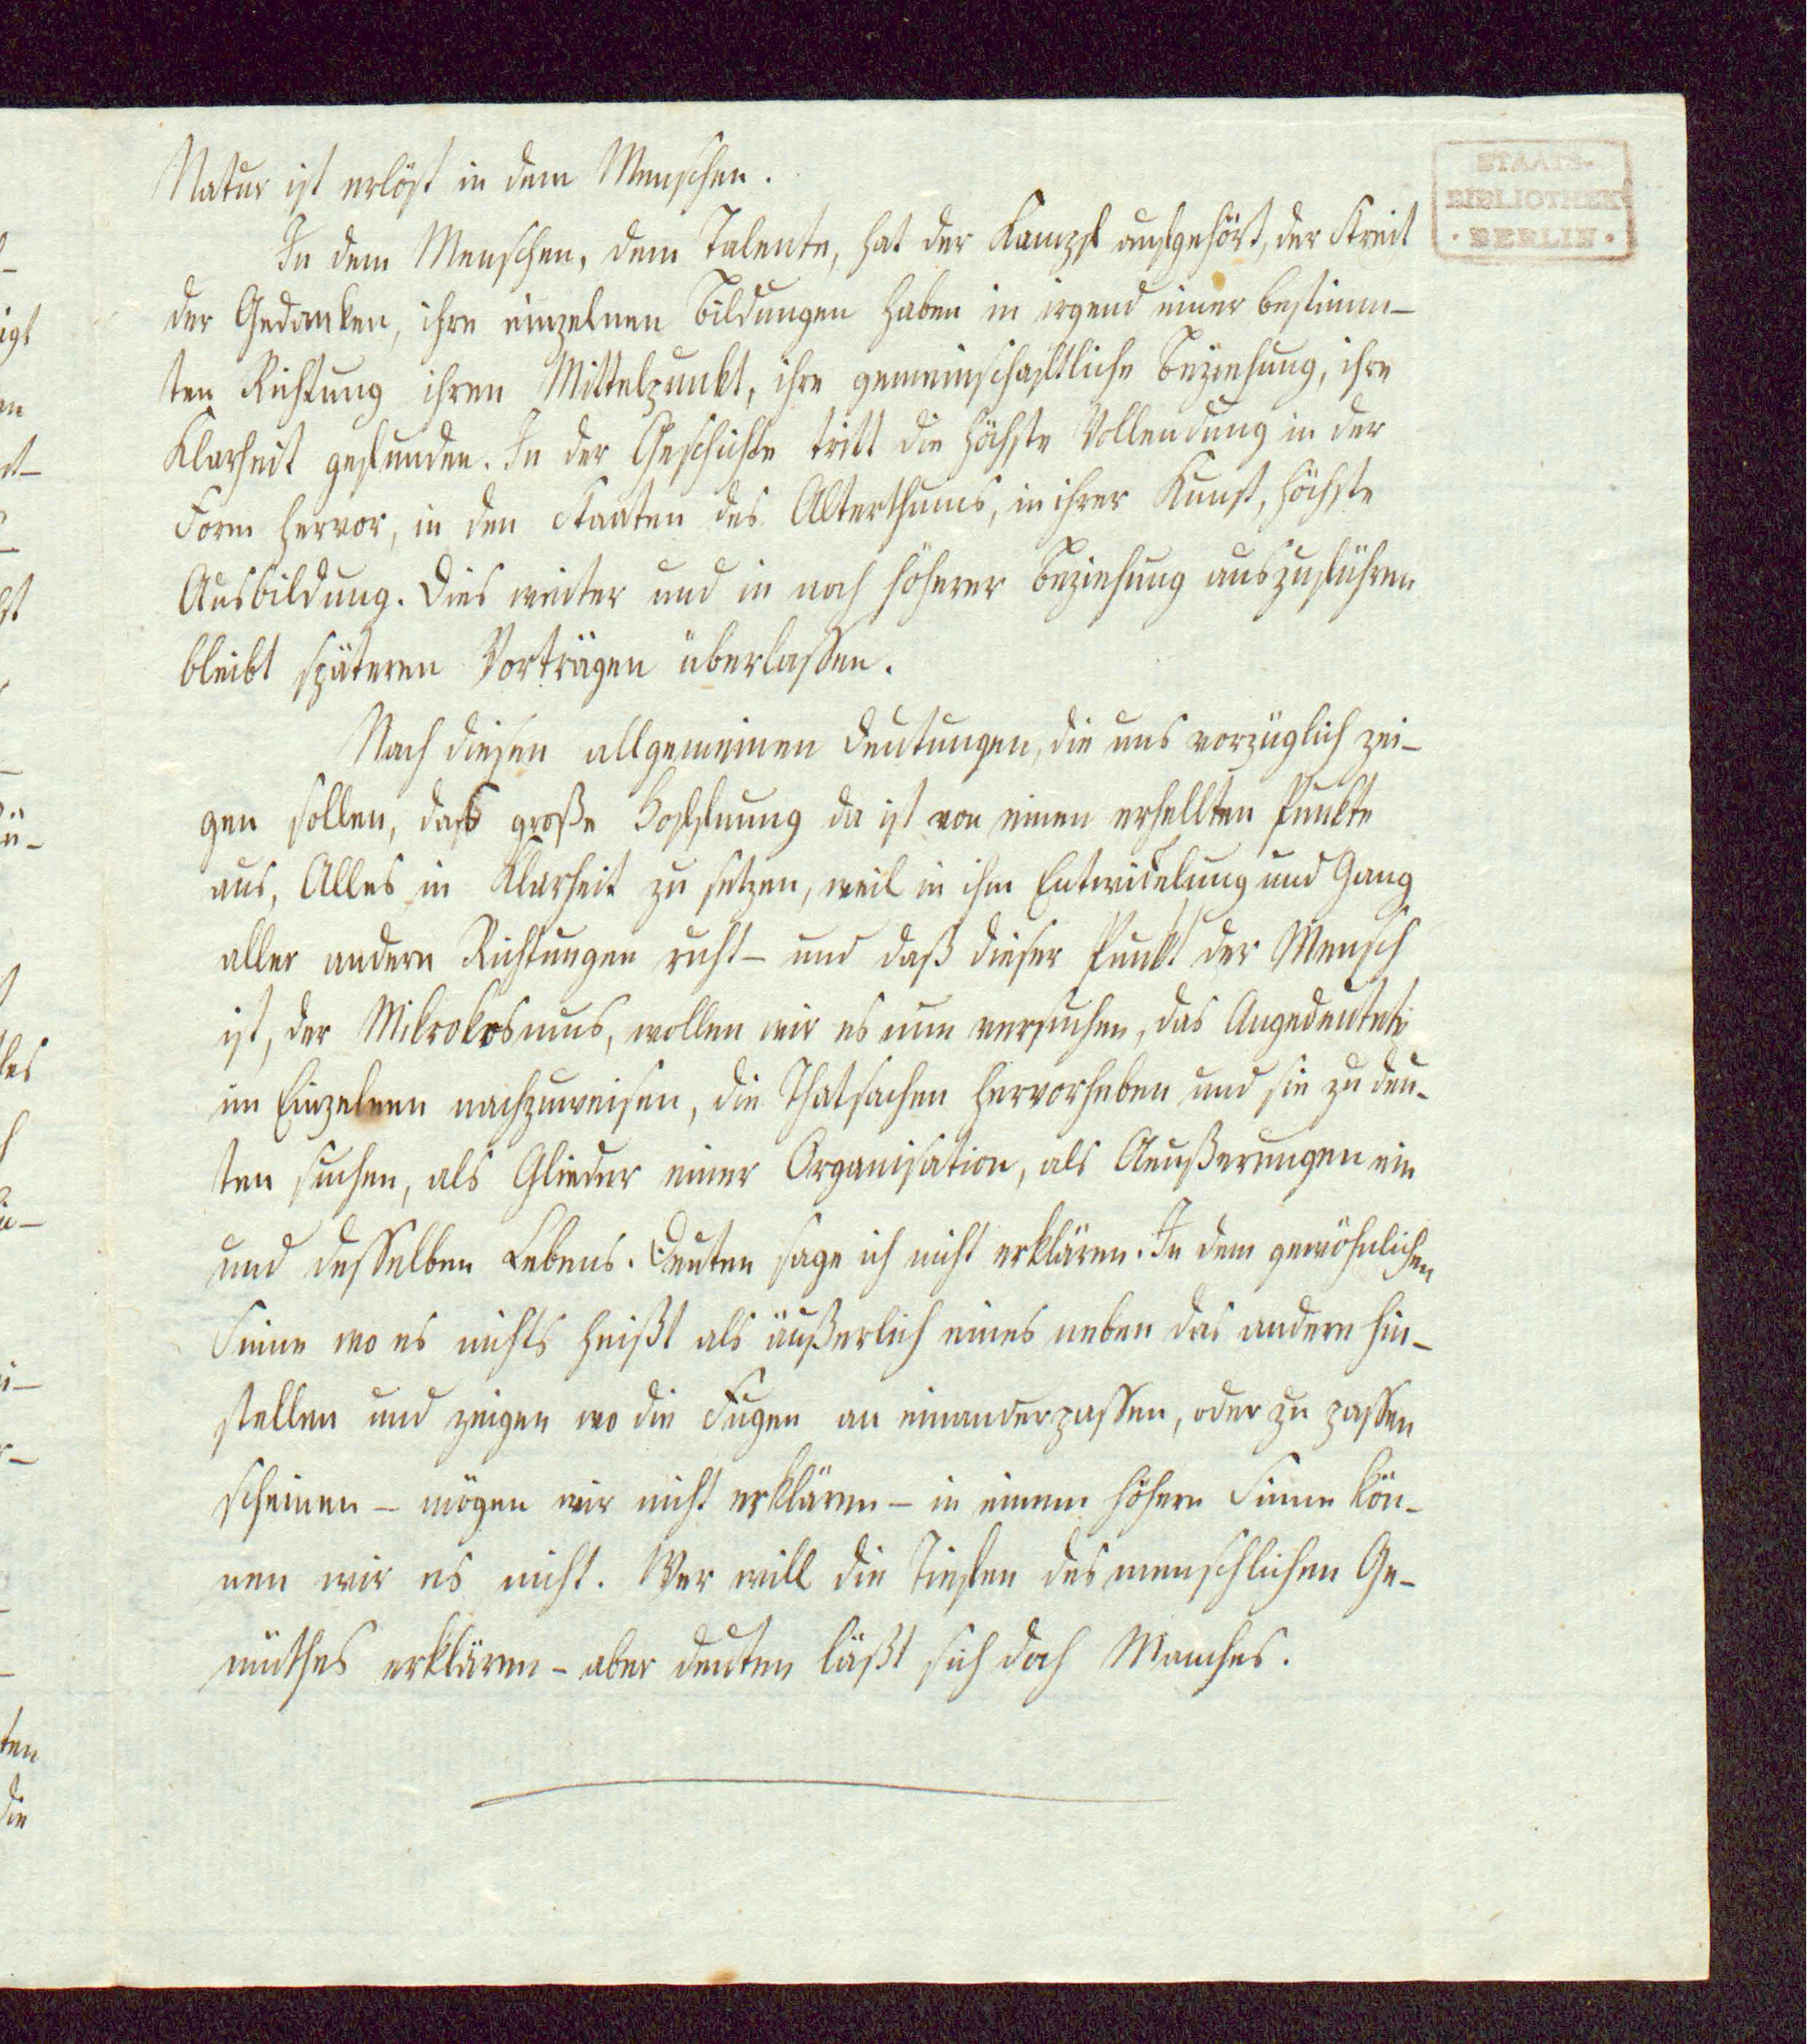 Natur ist erlöst in dem Menschen.
STAATS-
BIBLIOTHEK
· BERLIN ·
In dem Menschen, dem Talente, hat der Kampf aufgehört, der Streit
der Gedanken, ihre einzelnen Bildungen haben in irgend einer bestimm–
ten Richtung ihren Mittelpunkt, ihre gemeinschaftliche Beziehung, ihre
Klarheit gefunden. In der Geschichte tritt die höchste Vollendung in der
Form hervor, in den Staaten des Alterthums, in ihrer Kunst, höchste
Ausbildung. Dies weiter und in noch höherer Beziehung auszuführen
bleibt späteren Vorträgen überlassen.
Nach diesen allgemeinen Deutungen, die uns vorzüglich zei–
gen sollen, daß große Hoffnung da ist von einen erhellten Punkte
aus, Alles in Klarheit zu setzen, weil in ihm Entwickelung und Gang
aller andern Richtungen ruht – und daß dieser Punkt der Mensch
ist, der Mikrokosmus, wollen wir es nun versuchen, das Angedeutete
im Einzelnen nachzuweisen, die Thatsachen hervorheben und sie zu deu-
ten suchen, als Glieder einer Organisation, als Aeußerungen ein
und desselben Lebens. Deuten sage ich nicht erklären. In dem gewöhnlichen
Sinne wo es nichts heißt als äußerlich eines neben das andere hin–
stellen und zeigen wo die Fugen an einanderpassen, oder zu passen
scheinen – mögen wir nicht erklären – in einem höhern Sinne kön–
nen wir es nicht. Wer will die Tiefen des menschlichen Ge–
müthes erklären – aber deuten läßt sich doch Manches.